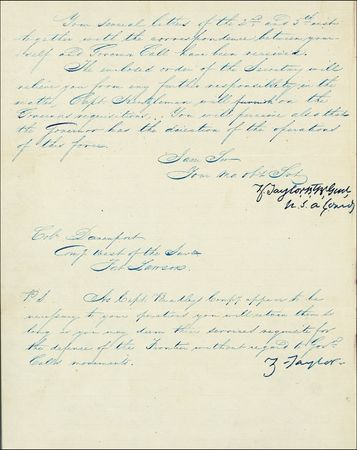 Your several letters of the 2nd and 5th inst
together with the correspondence between your-
self and Governor Call have been received.
The enclosed order of the Secretary will
relieve you from any further responsibility in the
matter. Capt will furnish on the
Governors requisitions. You will perceive also that
the Governor has the direction of the operations
of this force.
I am Sir
Your Mo obt Svt
Z Taylor Bt Br Genl,
U. S. A. Comdg
Col. Davenport
Comg West of the Suwa
Fort
P.S. As Capt Bradleys Compy appears to be
necessary to your operations you will retain them so
long as you may deem their services requisite for
the defence of the Frontier without regard to Govr.
Calls movements.
Z-Taylor-